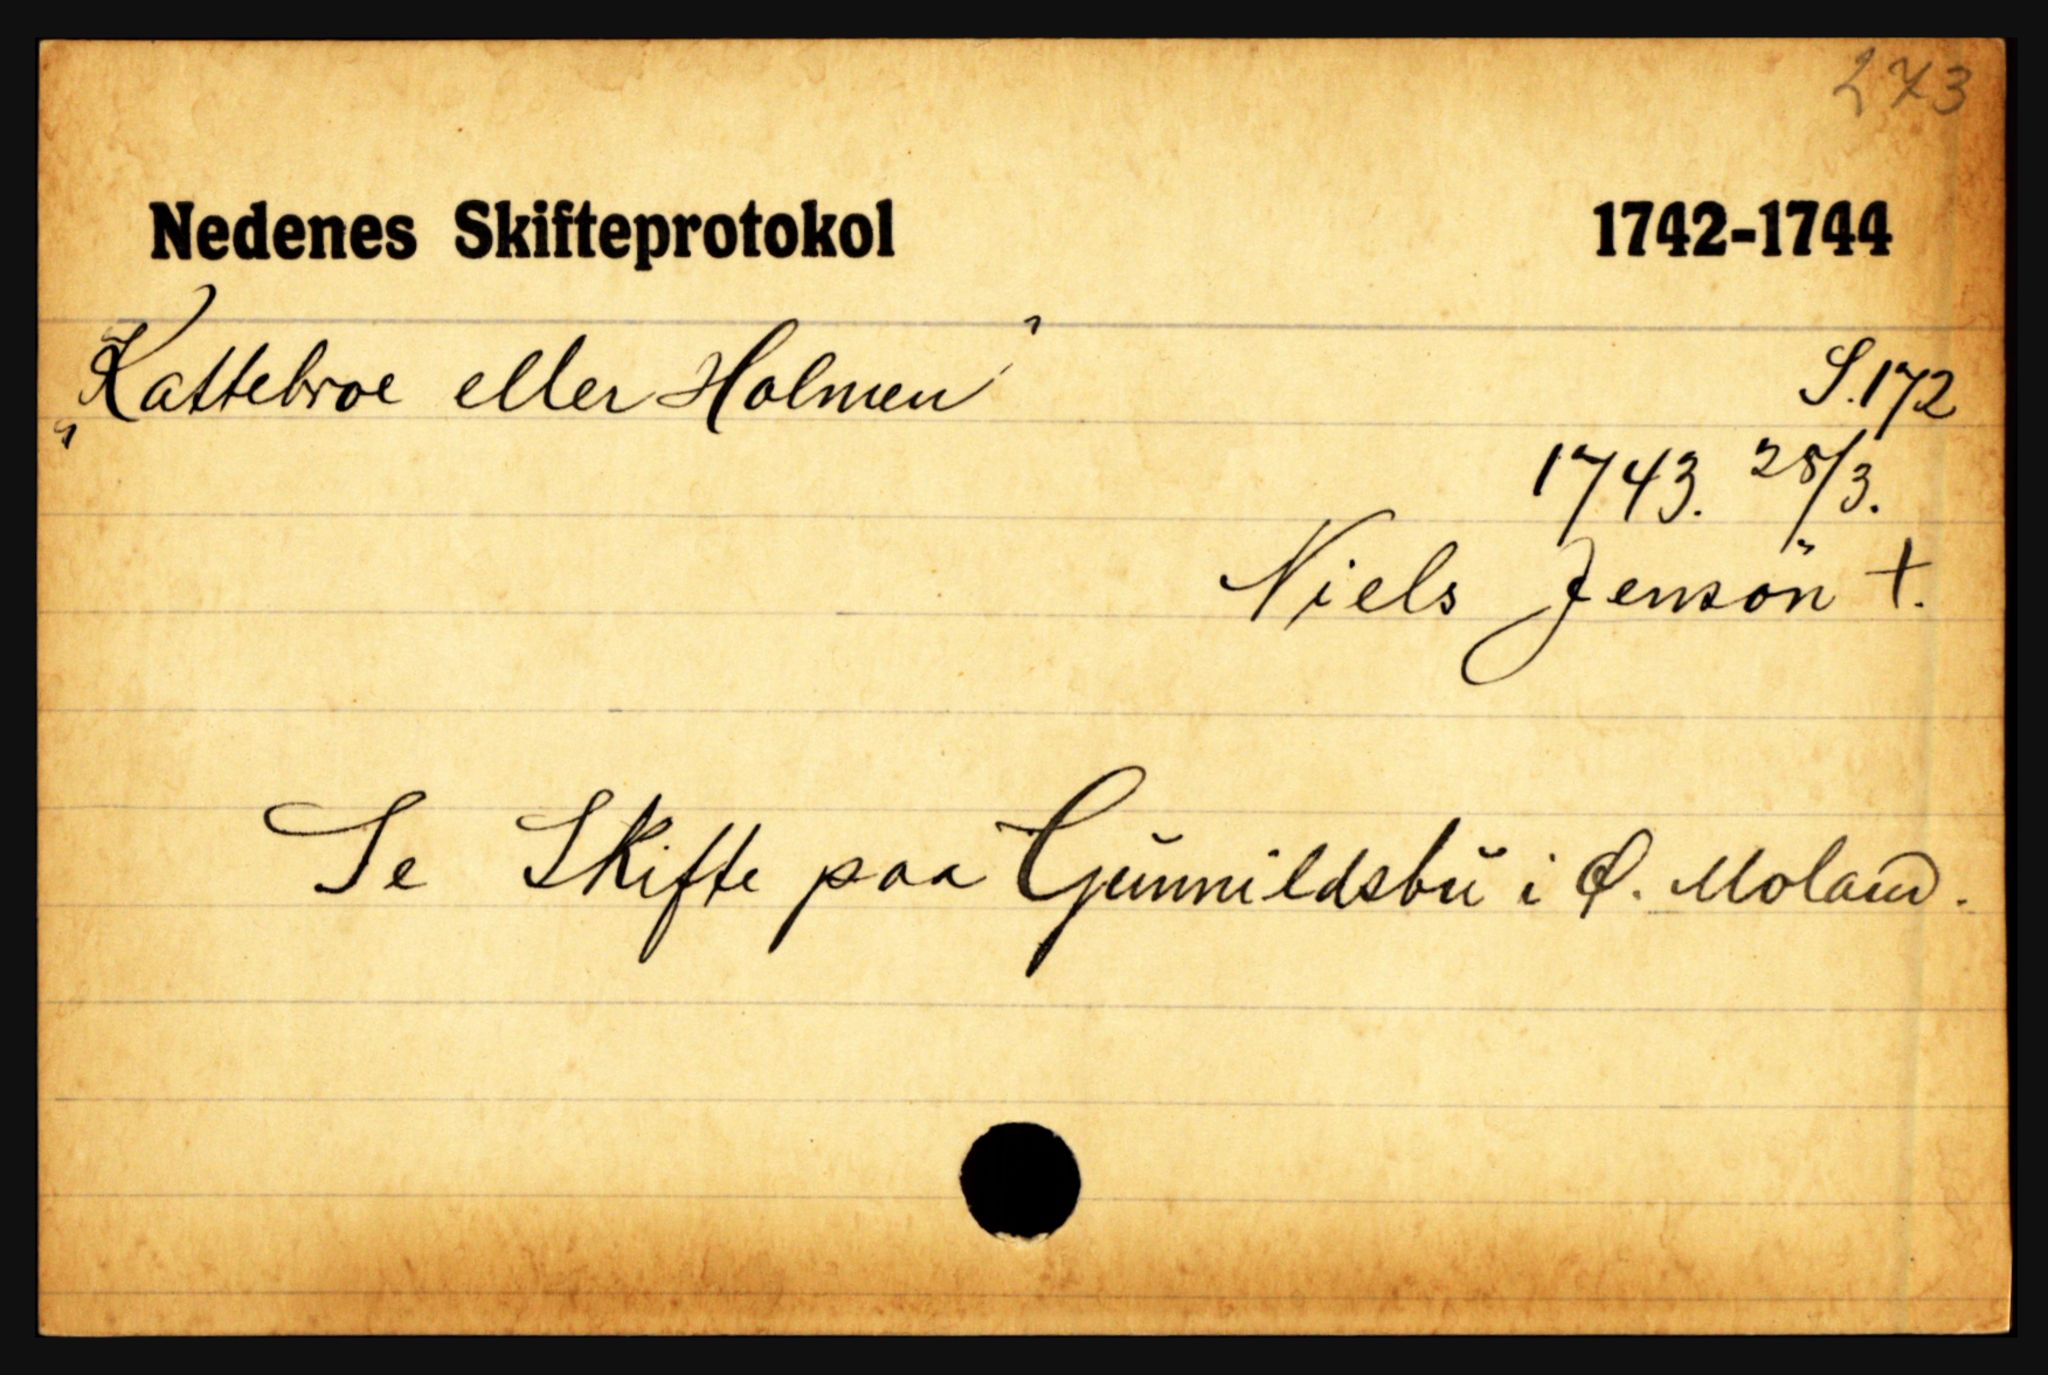 273
Nedenes Skifteprotokol 1742-1744
„Kattebroe eller Holmen” S. 172
1743. 28/3.
Niels Jensøn †.
Se Skifte paa Gunnildsbu i Ø. Moland.